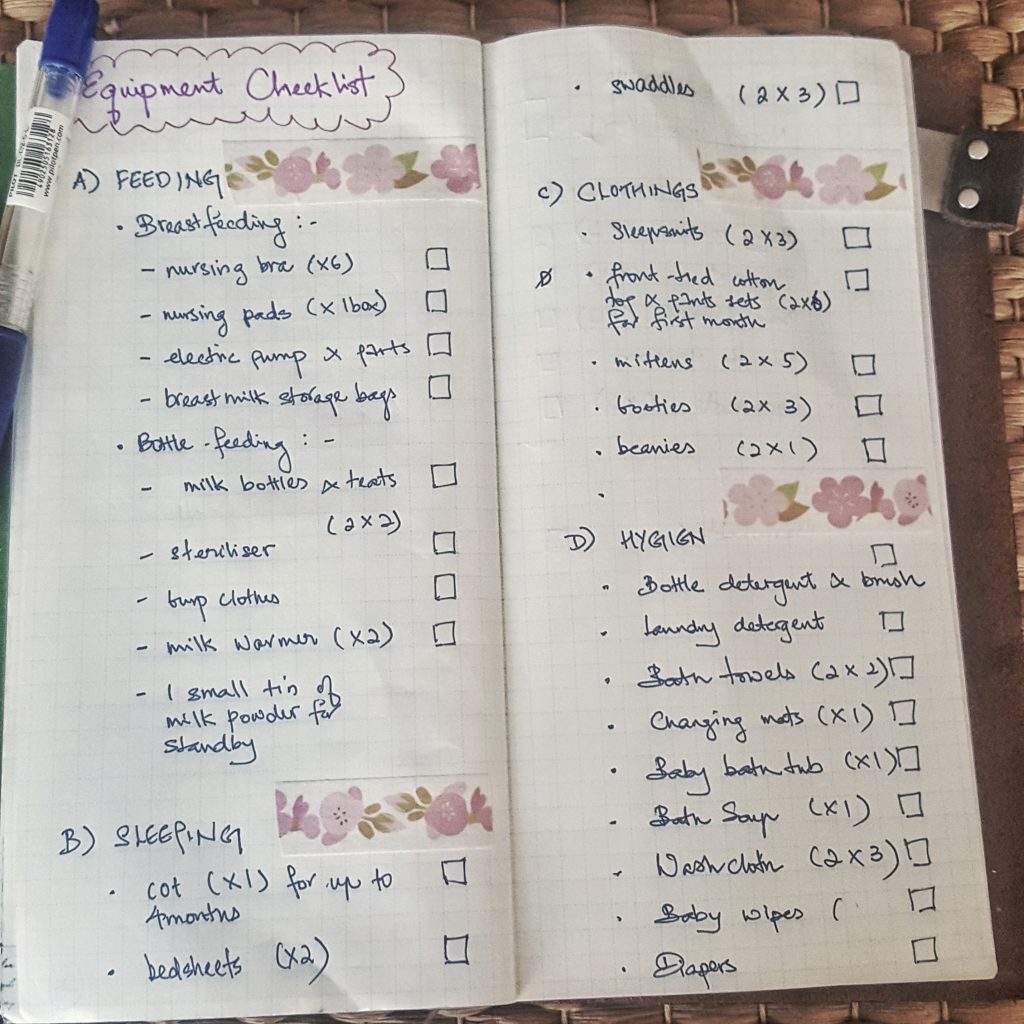 Equipment Checklist
A) FEEDING
• Breastfeeding :-
- nursing bra (x6)
- nursing pads (x 1box)
- electric pump & parts
- breastmilk storage bags
• Bottle-feeding : -
- milk bottles & teats
(2 x 2)
- steriliser
- burp clothes
- milk warmer (x2)
- 1 small tin of
milk powder for
standby
B) SLEEPING
• cot (x1) for up to
4months
• bedsheets (x2)
• swaddles (2 x 3)
C) CLOTHINGS
• Sleepsuits (2 x 3)
• front-tied cotton
top & pants sets (2x6)
for first month
• mittens (2 x 5)
• booties (2x 3)
• beanies (2x1)
•
D) HYGIGN
• Bottle detergent & brush
• Laundry detergent
• Bath towels (2 x 2)
• Changing mats (x1)
• Baby bath tub (x1)
• Bath Soap (x1)
• Wash cloth (2 x 3)
• Baby wipes (
• Diapers
www.pilotpen.com